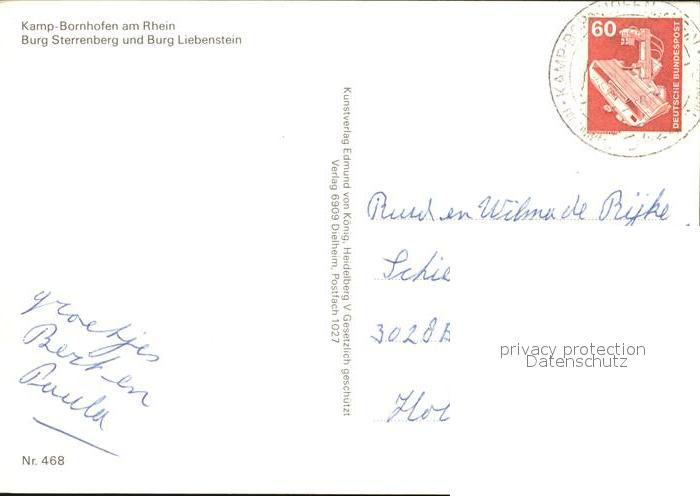 Kamp-Bornhofen am Rhein
Burg Sterrenberg und Burg Liebenstein
60
DEUTSCHE BUNDESPOST
KAMP-BOR
Kunstverlag Edmund von König, Heidelberg V Gesetzlich geschützt
Verlag 6909 Dielheim, Postfach 1027
Ruud en Wilma de Rijke
Schie
3028B
Hol
privacy protection
Datenschutz
groetjes
Bert en
Paula
Nr. 468